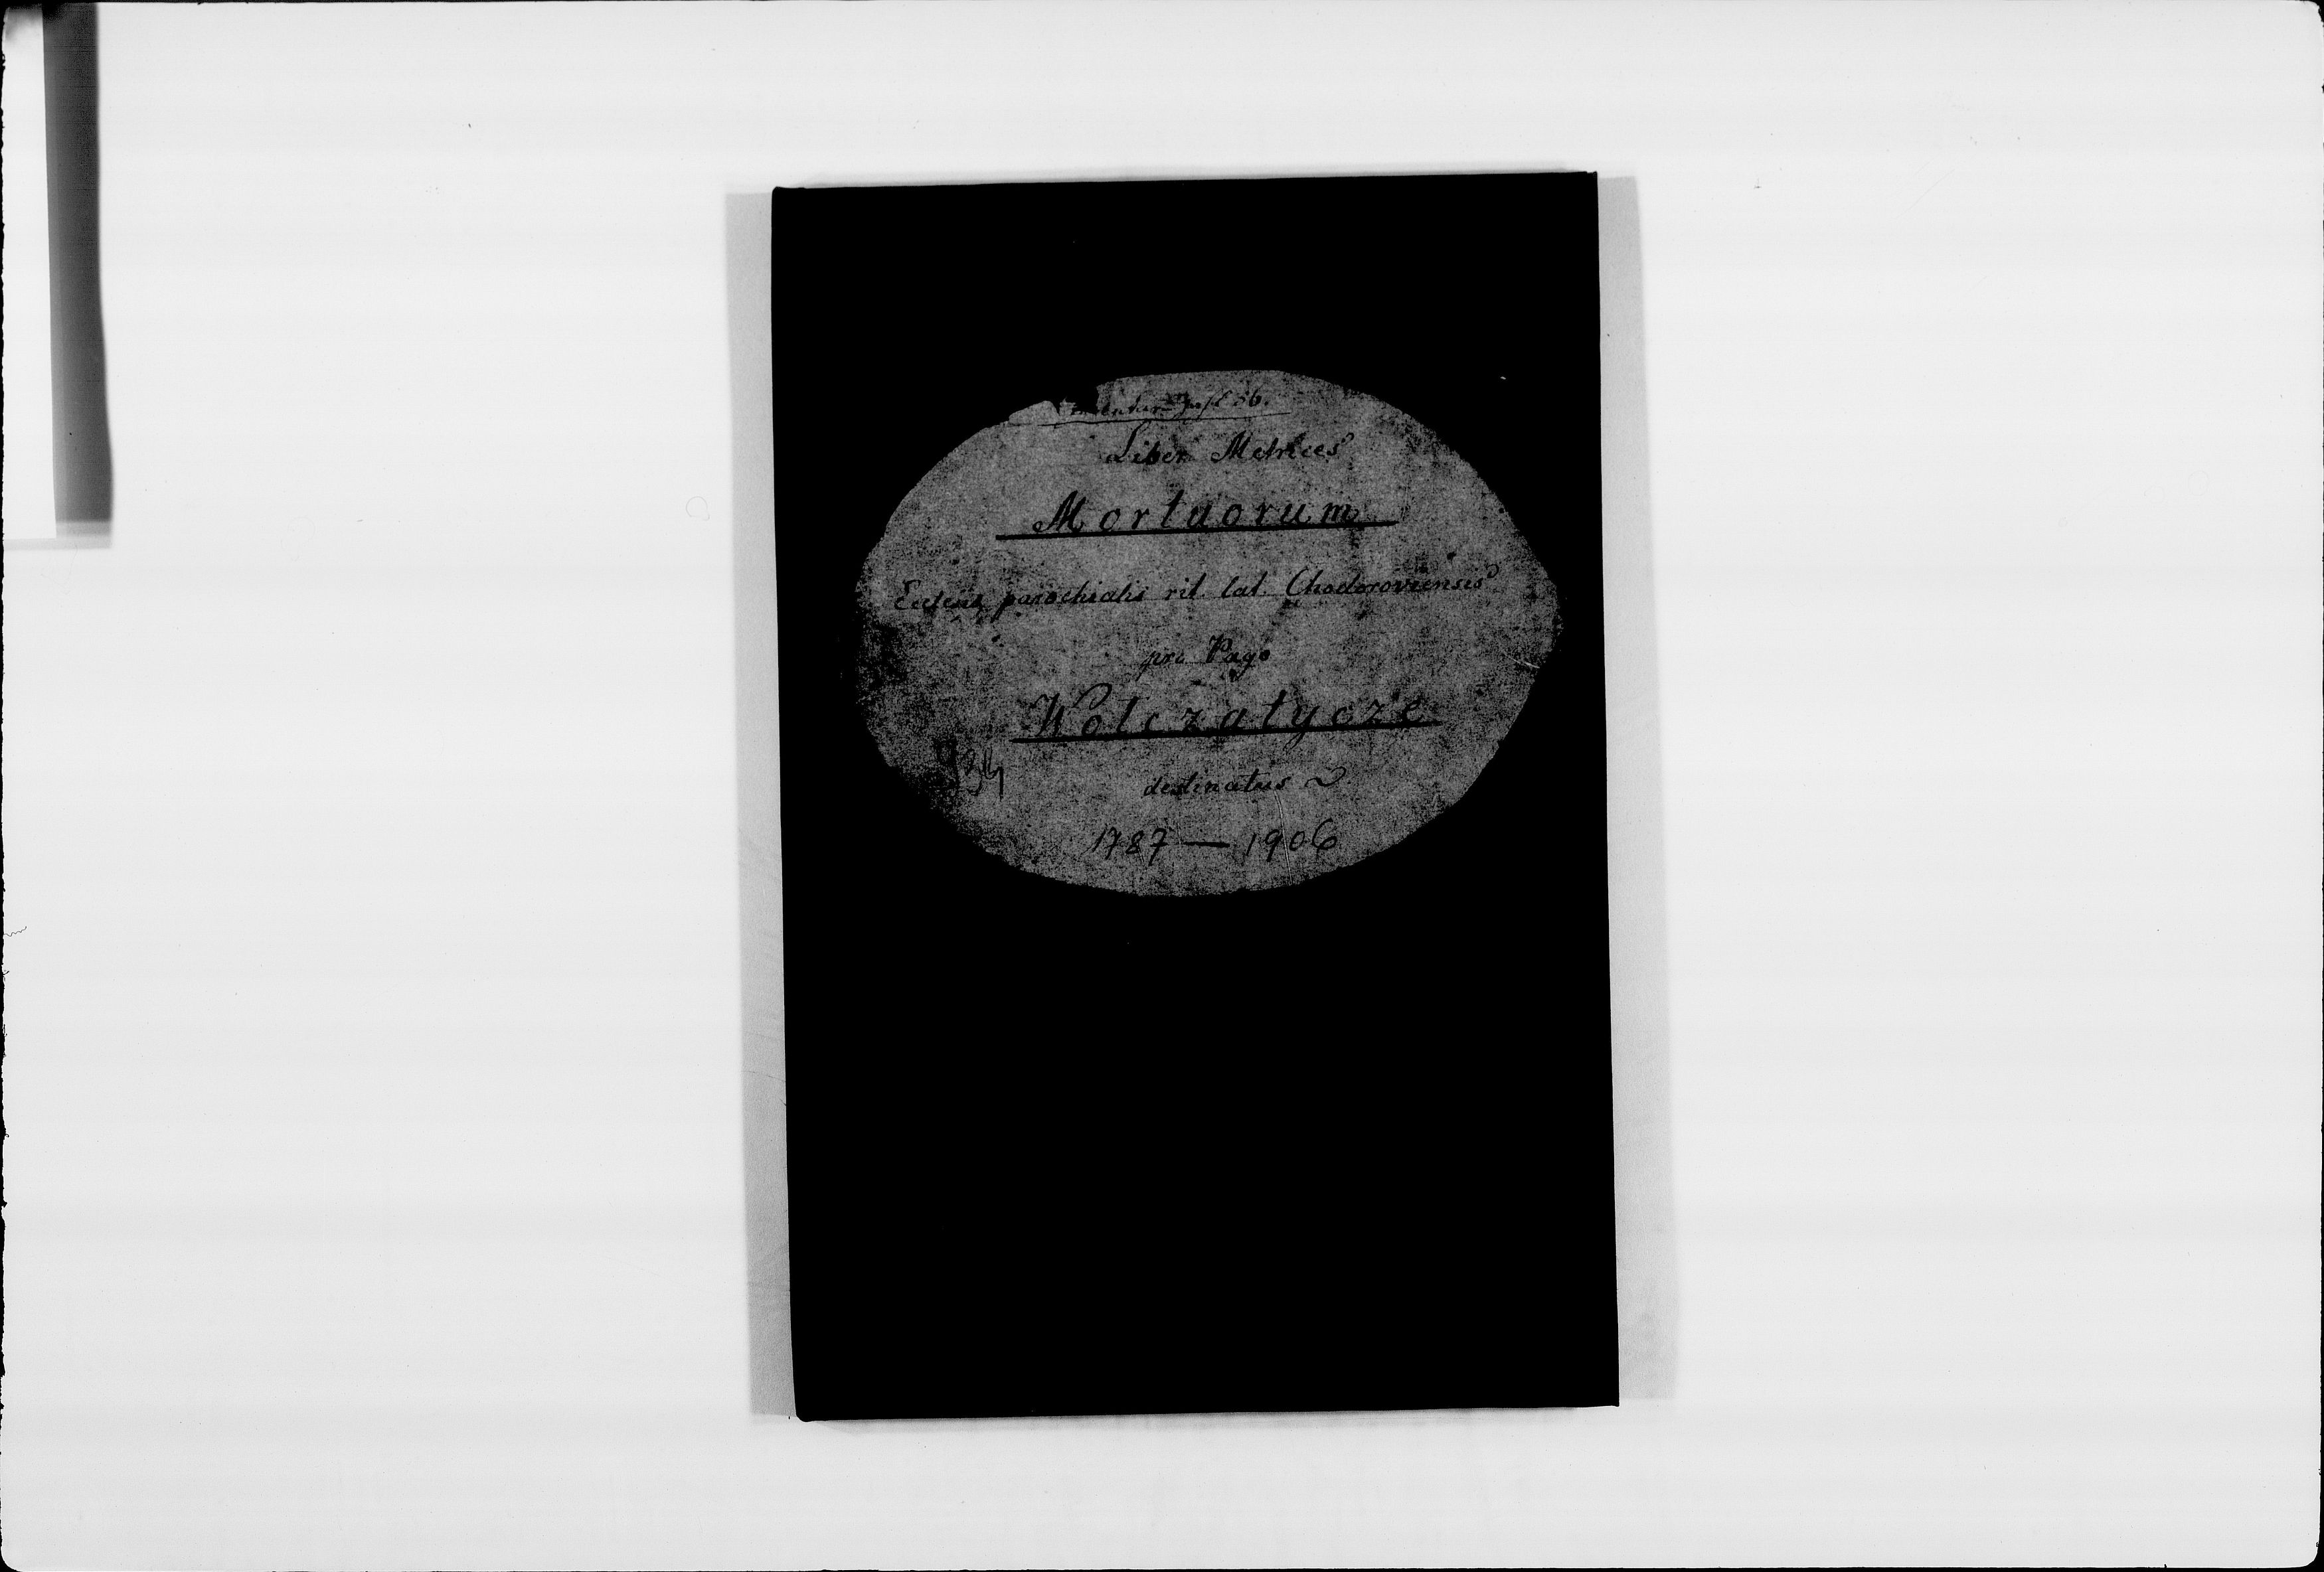 Liber Metrices
Mortuorum
Ecclesia parochialis rit. lat. Chodoroviensis
pro Pago
Wolczatycze
534
destinatus
1787 — 1906